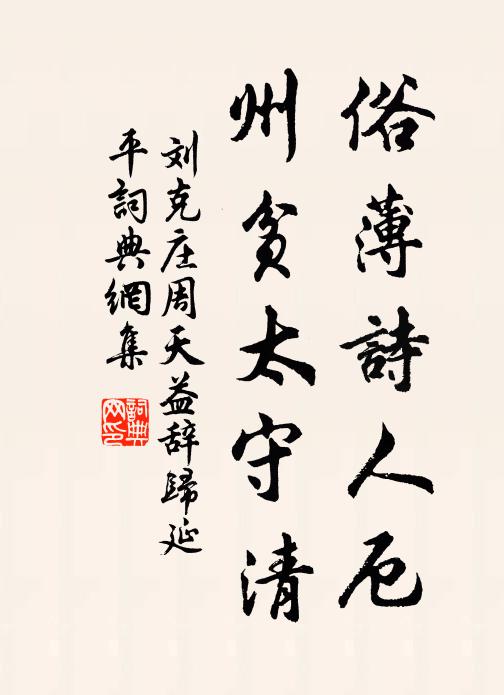 俗薄詩人厄
州貧太守清
刘克庄周天益辞歸延
平詞典網集
詞典
网印